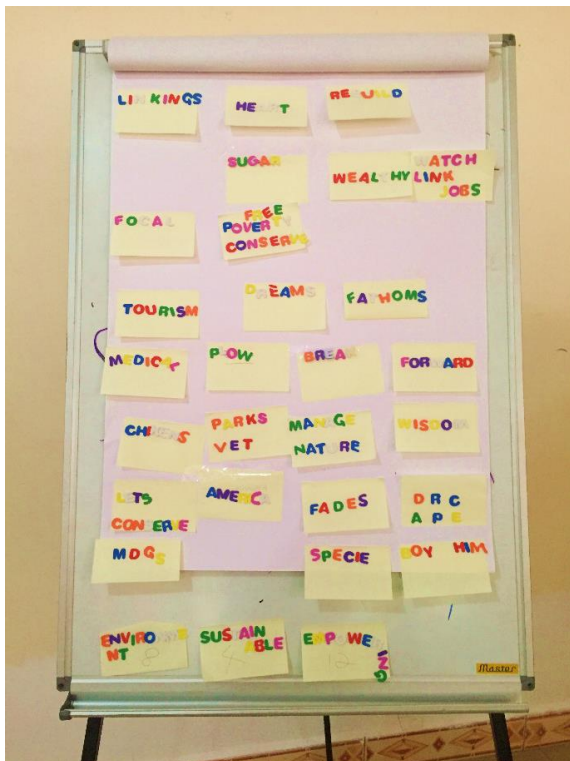 LINKINGS
HEART
REBUILD
SUGAR
WEALTHY
WATCH
LINK
JOBS
FOCAL
FREE
POVERTY
CONSERVE
TOURISM
DREAMS
FATHOMS
MEDICAL
FORWARD
PARKS
VET
MANAGE
NATURE
WISDOM
LETS
CONSERVE
AMERICA
FADES
DRC
APE
MDGS
SPECIE
BOY HIM
NT 8
SUSTAIN
ABLE
4
12
Master